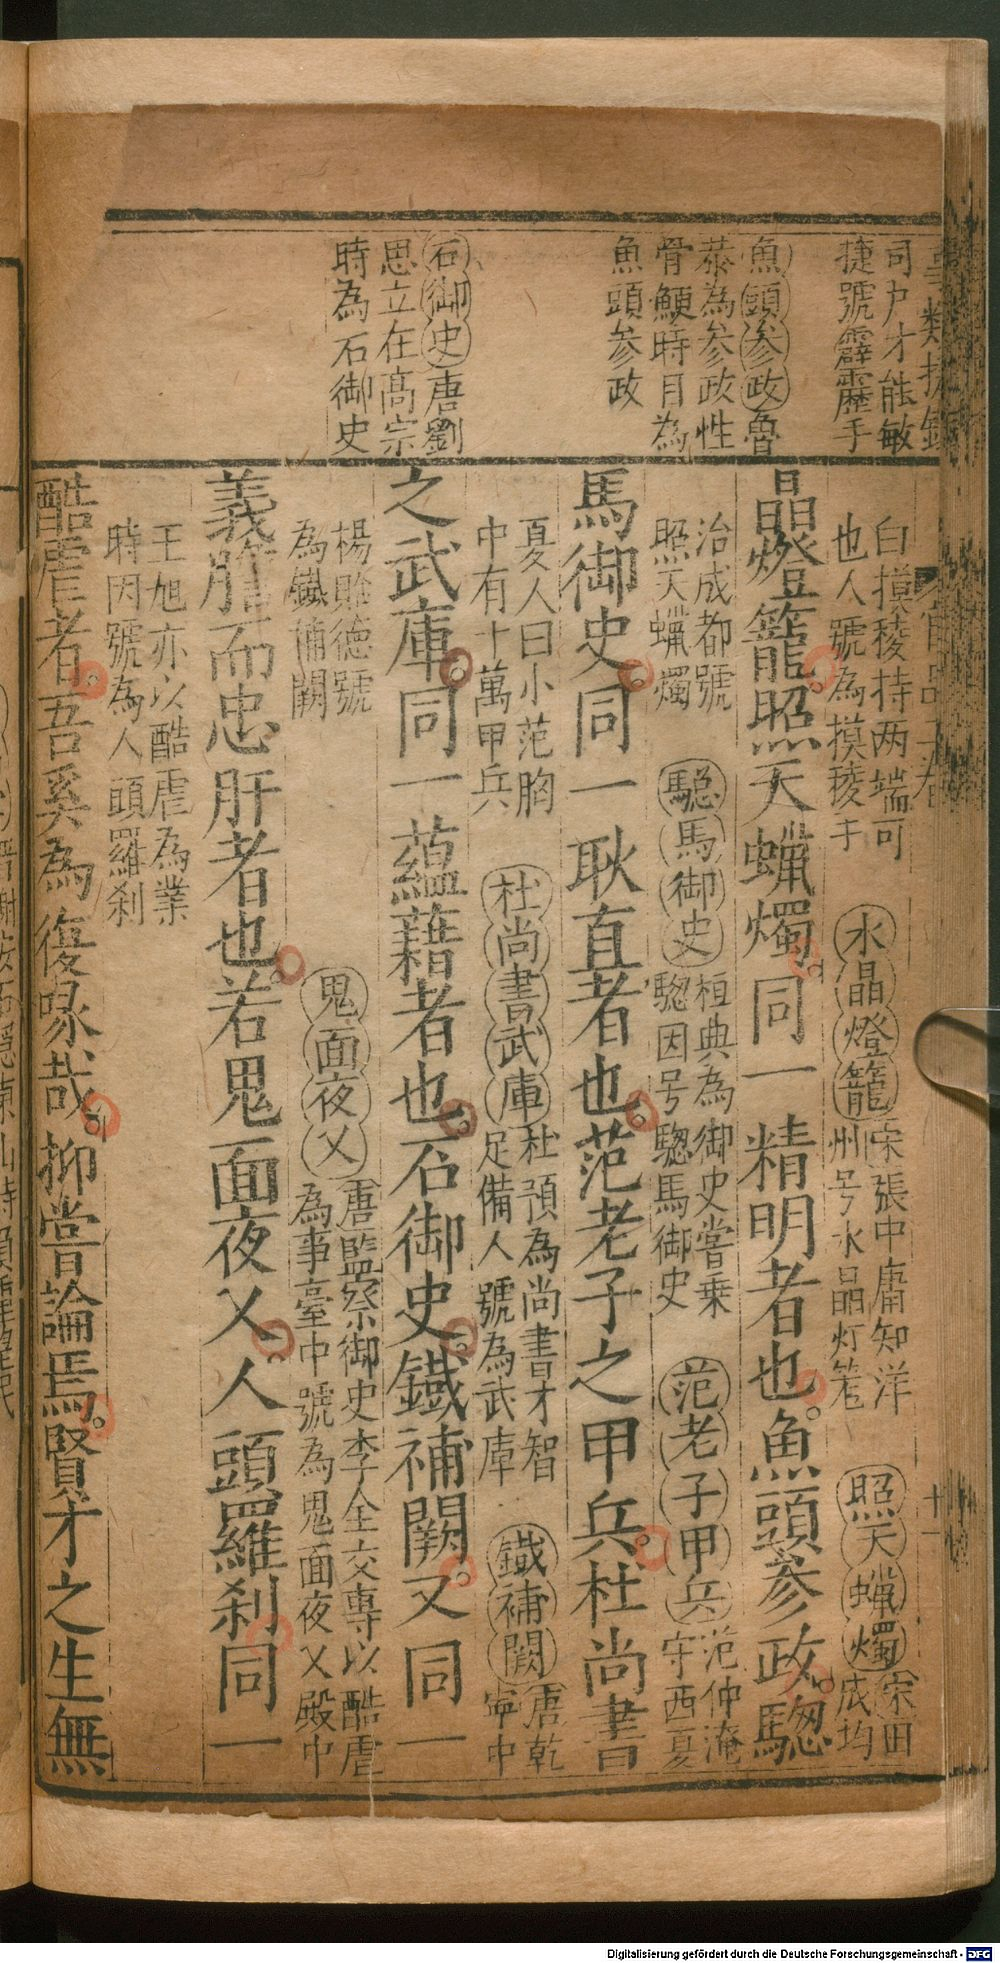 司户才能敏
捷號霹靂手
魚頭參政魯
恭為参政性
骨鯁時目為
魚頭参政
石御史唐劉
思立在高宗
時為石御史
白摸稜持两端可
也人號為摸稜手
水晶燈籠宋張中庸知洋
州号水晶灯笼
照天蠟燭宋田
成均
晶燈籠照天蠟燭同一精明者也魚頭參政驄
治成都號
照天蠟燭
驄馬御史桓典為御史嘗乗
驄因号驄馬御史
范老子甲兵范仲淹
守西夏
馬御史同一耿直者也范老子之甲兵杜尚書
夏人曰小范胸
中有十萬甲兵
杜尚書武庫杜預為尚書才智
足備人號為武庫
鐵補闕唐乾
寧中
之武庫同一蘊藉者也石御史鐵補闕又同一
楊賅德號
為鐵補闕
鬼面夜乂唐監察御史李全交專以酷虐
為事臺中號為鬼面夜乂殿中
義胆而忠肝者也若鬼面夜乂人頭羅剎同一
王旭亦以酷虐為業
時因號為人頭羅刹
酷虐者吾奚為復喙哉抑嘗論焉賢才之生無
Digitalisierung gefördert durch die Deutsche Forschungsgemeinschaft - DFG